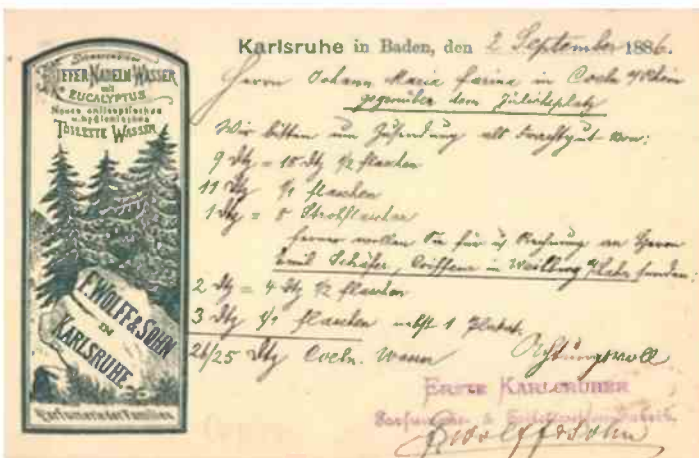 Schwarzwälder
KIEFER NADELN WASSER
mit
EUCALYPTUS
Neues antiseptisches
u. hygienisches
TOILETTE WASSER
F. WOLFF & SOHN
IN
KARLSRUHE
Karlsruhe in Baden, den 2 September 1886.
Herrn Johann Maria Farina in Coeln a/Rhein
gegenüber dem Jülichsplatz
Wir bitten um Zusendung als Frachtgut von:
9 Dtz = 18 Dtz 1/2 Flaschen
11 Dtz 1/1 Flaschen
1 Dtz = 8 Strohflaschen
ferner wollen Sie für u/ Rechnung an Herrn
Emil Schäfer, Coiffeur in Weilburg a/Lahn senden:
2 Dtz = 4 Dtz 1/2 Flaschen
3 Dtz 1/1 Flaschen nebst 1 Plakat.
26/25 Dtz Coeln. Wasser
Achtungsvoll
ERSTE KARLSRUHER
Parfumerie- & Toiletteseifen-Fabrik.
F Wolff & Sohn